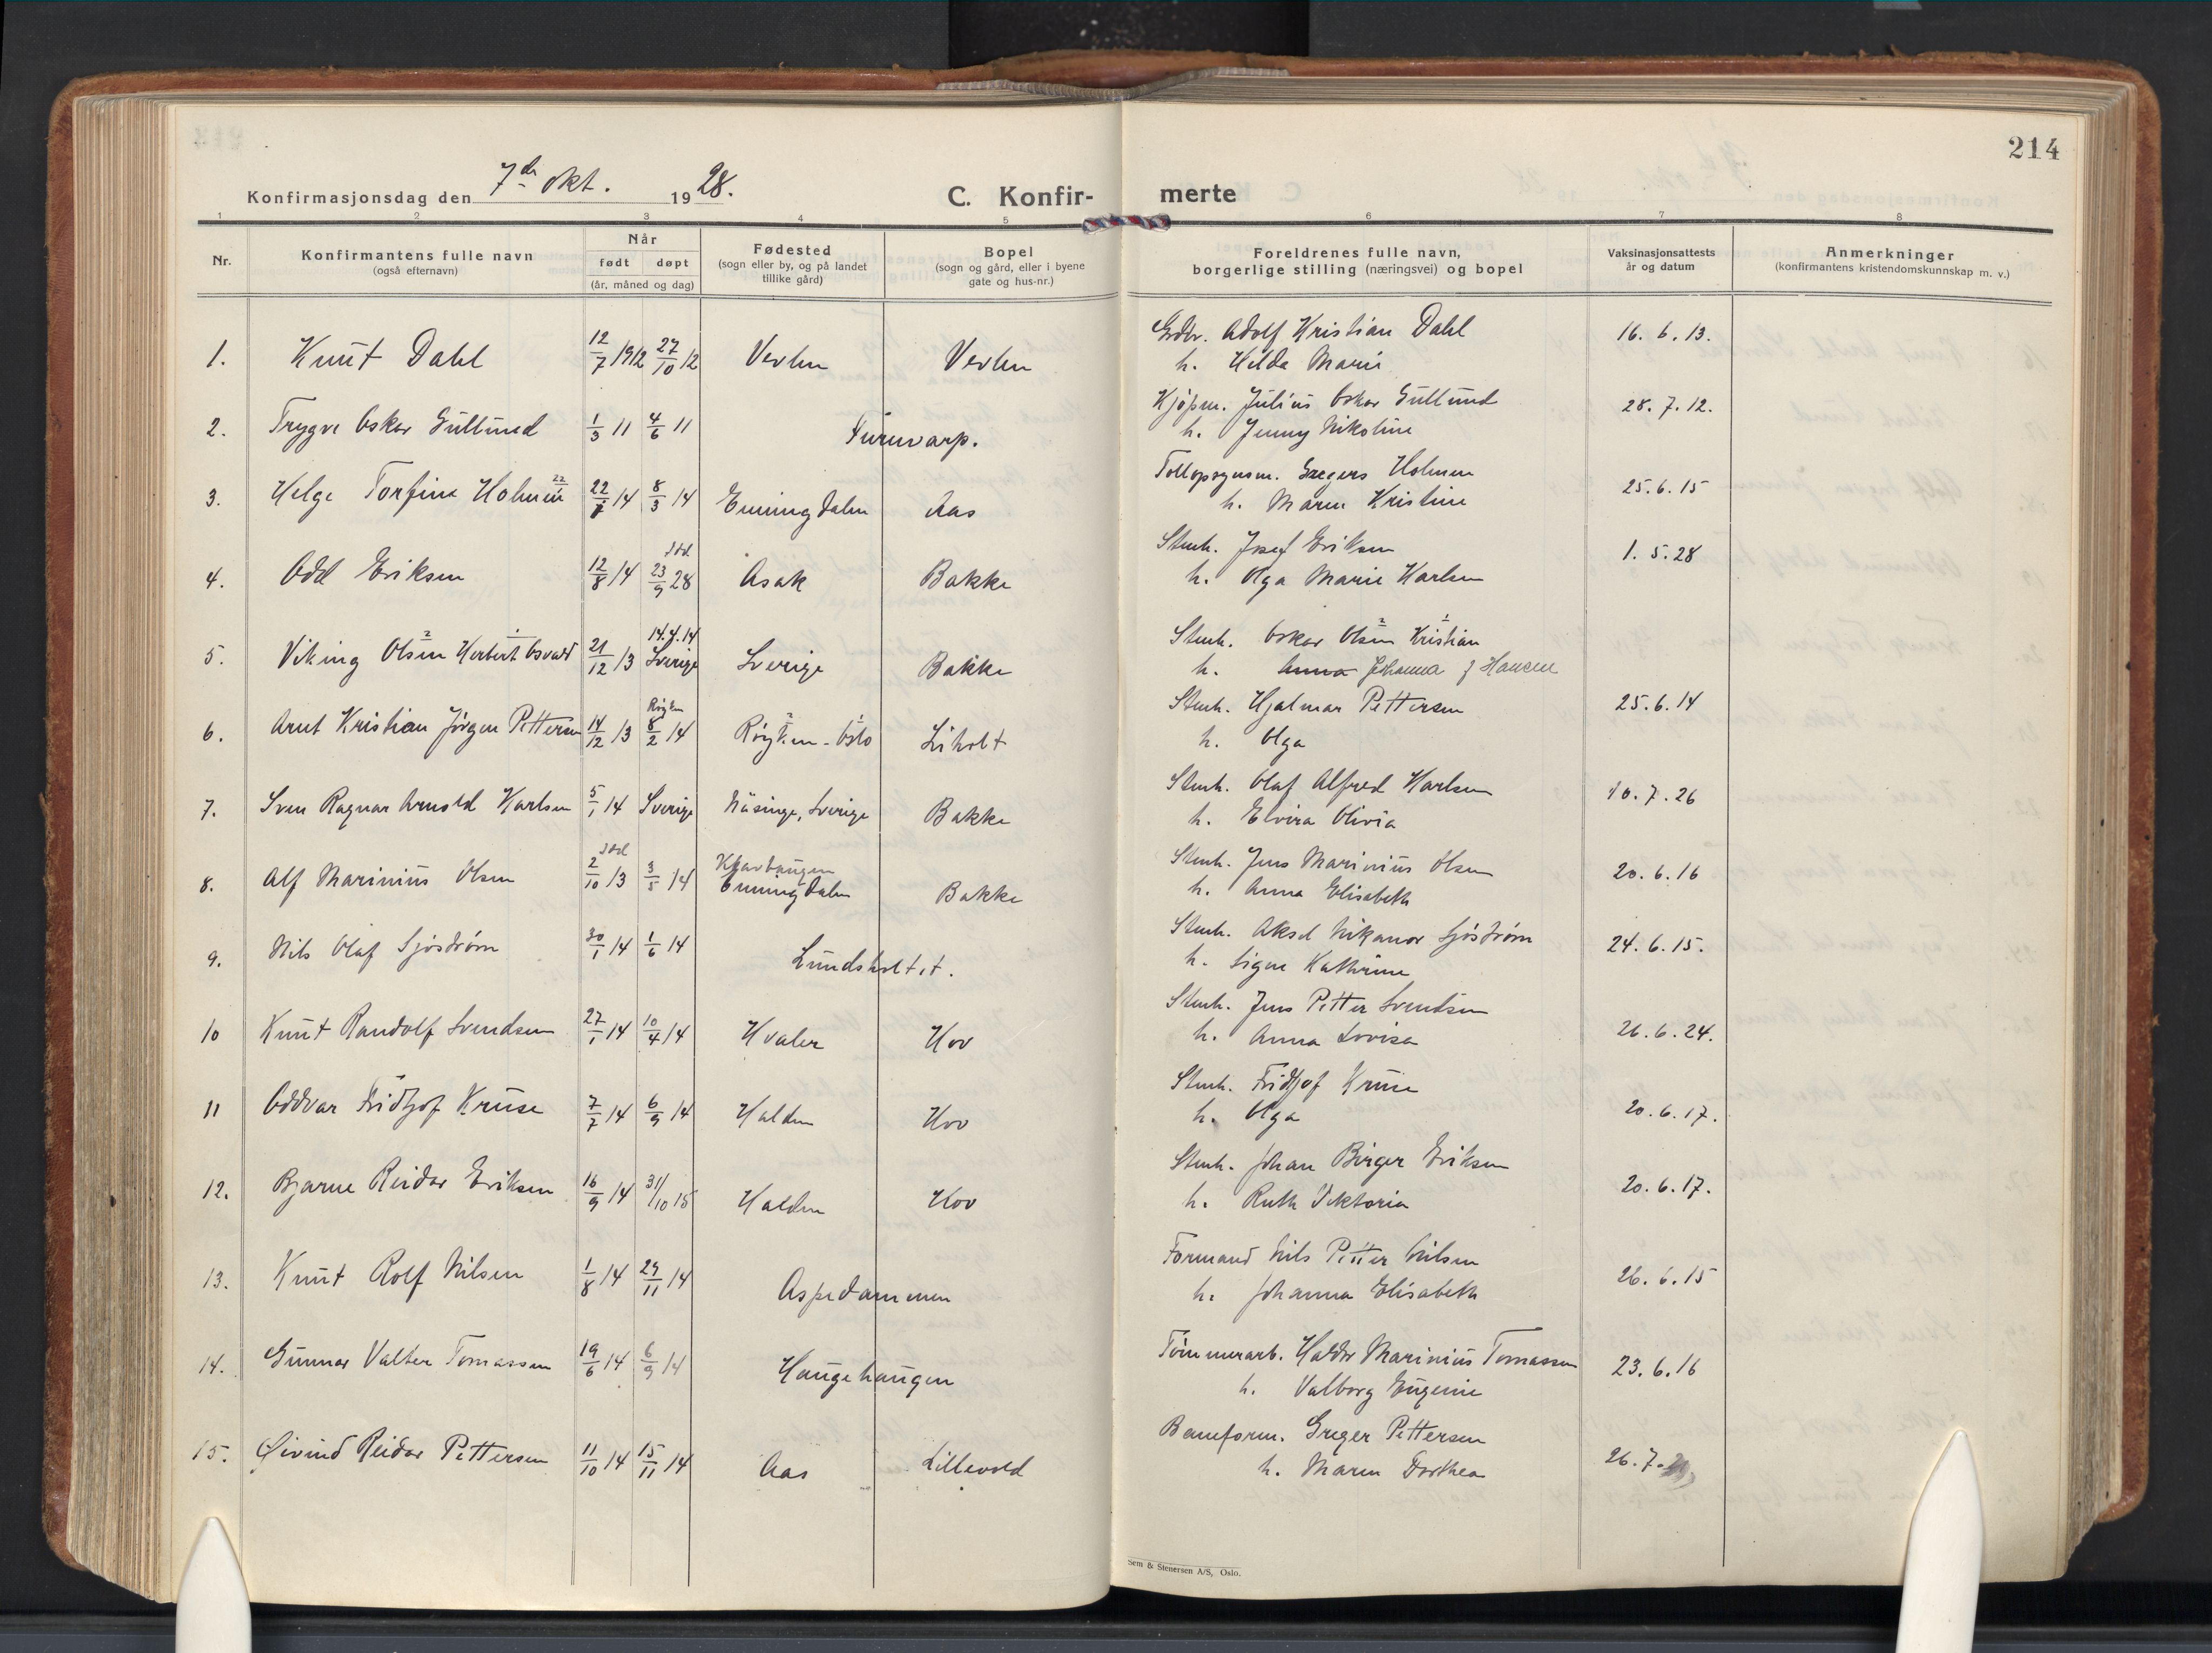 214
Konfirmasjonsdag den 7de Okt. 1928.
C. Konfir- merte
1 2 3 4 5 6 7 8
Nr.
Konfirmantens fulle navn
(også efternavn)
Når
født døpt
(år, måned og dag)
Fødested
(sogn eller by, og på landet
tillike gård)
Bopel
(sogn og gård, eller i byene
gate og hus-nr.)
Foreldrenes fulle navn,
borgerlige stilling (næringsvei) og bopel
Vaksinasjonsattests
år og datum
Anmerkninger
(konfirmantens kristendomskunnskap m. v.)
1. Knut Dahl 12/7 1912 27/10 12 Vevlen Vevlen Grdbr. Adolf Kristian Dahl 16.6.13.
h. Hilda Marie
2. Trygve Oskar Gullund 1/3 11 4/6 11 Furuvarp. Kjøpm. Julius Oskar Gullund 28.7.12.
h. Jenny Nikoline
3. Helge Torfinn Holmen 22/1 14 8/3 14 Enningdalen Aas Tollopsynsm. Gregers Holmen 25.6.15
h. Maren Kristine
4. Odd Eriksen 12/8 14 Idd 23/9 28 Asak Bakke Stenh. Josef Eriksen 1.5.28
h. Olga Marie Karlsen
5. Viking Olsen Herbert Osvald 21/12 13 14.4.14 Sverige Sverige Bakke Stenh. Oskar Olsen Kristian
h. Anna Johanna f Hansen
6. Arnt Kristian Jørgen Pettersen 14/12 13 Røyken 8/2 14 Røyken - Oslo Liholt Stenh. Hjalmar Pettersen 25.6.14
h. Olga
7. Sven Ragnar Arnold Karlsen 5/1 14 Sverige Näsinge, Sverige Bakke Stenh. Olaf Alfred Karlsen 10.7.26
h. Elvira Olivia
8. Alf Marinius Olsen 2/10 13 Idd 3/5 14 Enningdalen Bakke Stenh. Jens Marinius Olsen 20.6.16
h. Anna Elisabeth
9. Nils Olaf Sjøstrøm 30/1 14 1/6 14 Lundsholtet. Stenh. Aksel Nikanor Sjøstrøm 24.6.15.
h. Signe Kathrine
10 Knut Randolf Svendsen 27/1 14 10/4 14 Hvaler Hov Stenh. Jens Petter Svendsen 26.6.24.
h. Anna Lovisa
11 Oddvar Fridtjof Kruse 7/7 14 6/9 14 Halden Hov Stenh. Fridtjof Kruse 20.6.17.
h. Olga
12. Bjarne Reidar Eriksen 16/9 14 31/10 15 Halden Hov Stenh. Johan Birger Eriksen 20.6.17.
h. Ruth Viktoria
13. Knut Rolf Nilsen 1/8 14 29/11 14 Aspedammen Formand Nils Petter Nilsen 26.6.15
h. Johanna Elisabeth
14. Gunnar Valter Tomassen 19/6 14 6/9 14 Haugehaugen Tømmerarb. Haldor Marinius Tomassen 23.6.16
h. Valborg Eugenie
15. Øivind Reidar Pettersen 11/10 14 15/11 14 Aas Lillevold Baneform. Greger Pettersen 26.7.
h. Maren Dorthea
Sem & Stenersen A/S, Oslo.